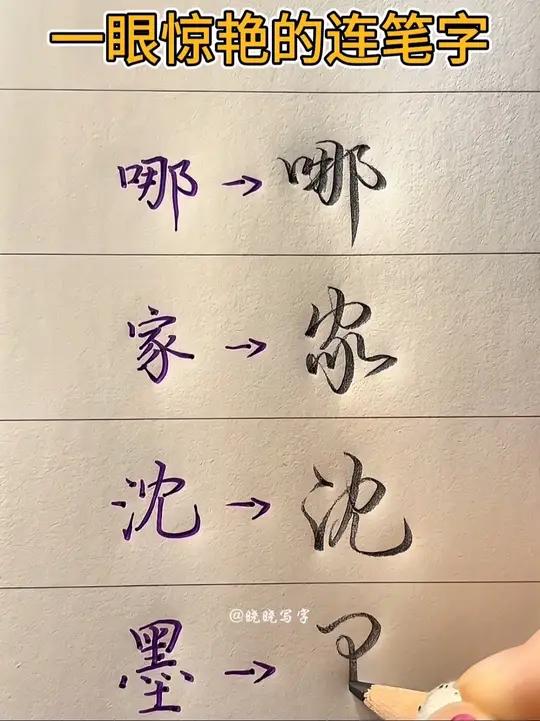 一眼惊艳的连笔字
哪 → 哪
家 → 家
沈 → 沈
@晓晓写字
墨 →